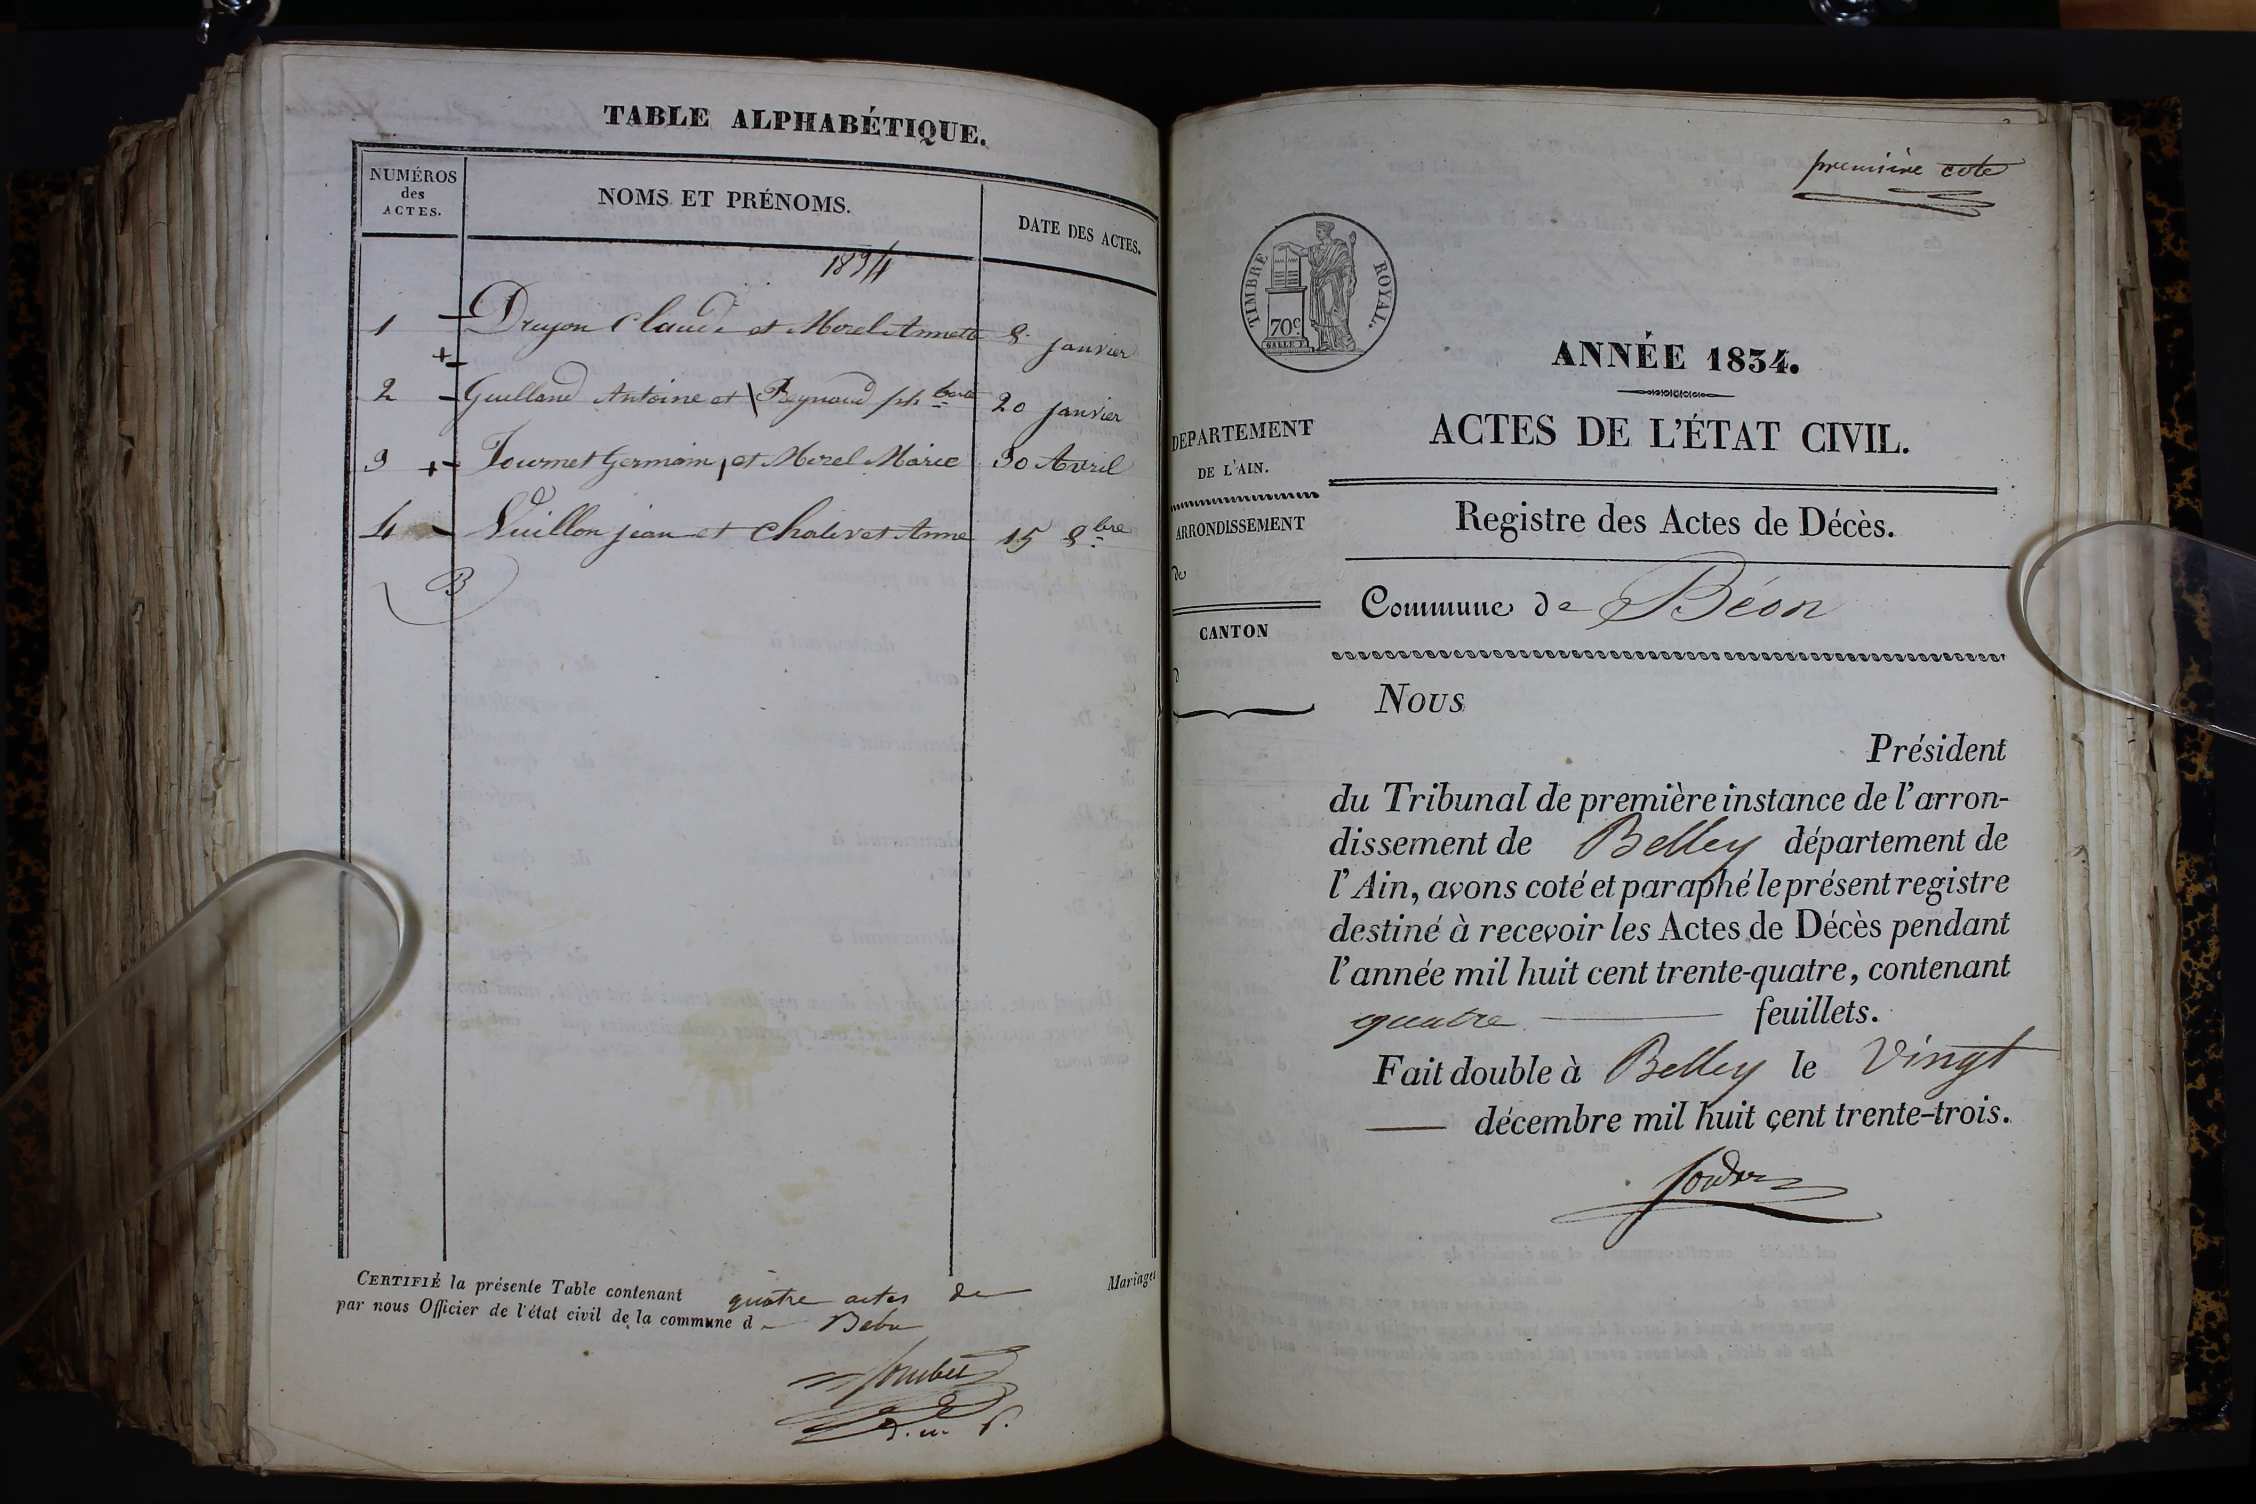 TABLE ALPHABÉTIQUE.
NUMÉROS
des
ACTES.
NOMS ET PRÉNOMS.
DATE DES ACTES.
1834
1 Druyon Claude et Morel Annette 8 janvier
2 Guilland Antoine et Reynaud 20 janvier
3 Fournet Germain et Morel Marie 30 Avril
4 Vuillon jean et Chalivet Anne 15 8bre
CERTIFIÉ la présente Table contenant quatre actes de Mariages
par nous Officier de l'état civil de la commune d
première cote
TIMBRE ROYAL.
70c.
ANNÉE 1834.
ACTES DE L'ÉTAT CIVIL.
DEPARTEMENT
DE L'AIN.
ARRONDISSEMENT
de
CANTON
Registre des Actes de Décès.
Commune de Béon
Nous
Président
du Tribunal de première instance de l'arron-
dissement de Belley département de
l'Ain, avons coté et paraphé le présent registre
destiné à recevoir les Actes de Décès pendant
l'année mil huit cent trente-quatre, contenant
quatre feuillets.
Fait double à Belley le Vingt
décembre mil huit cent trente-trois.